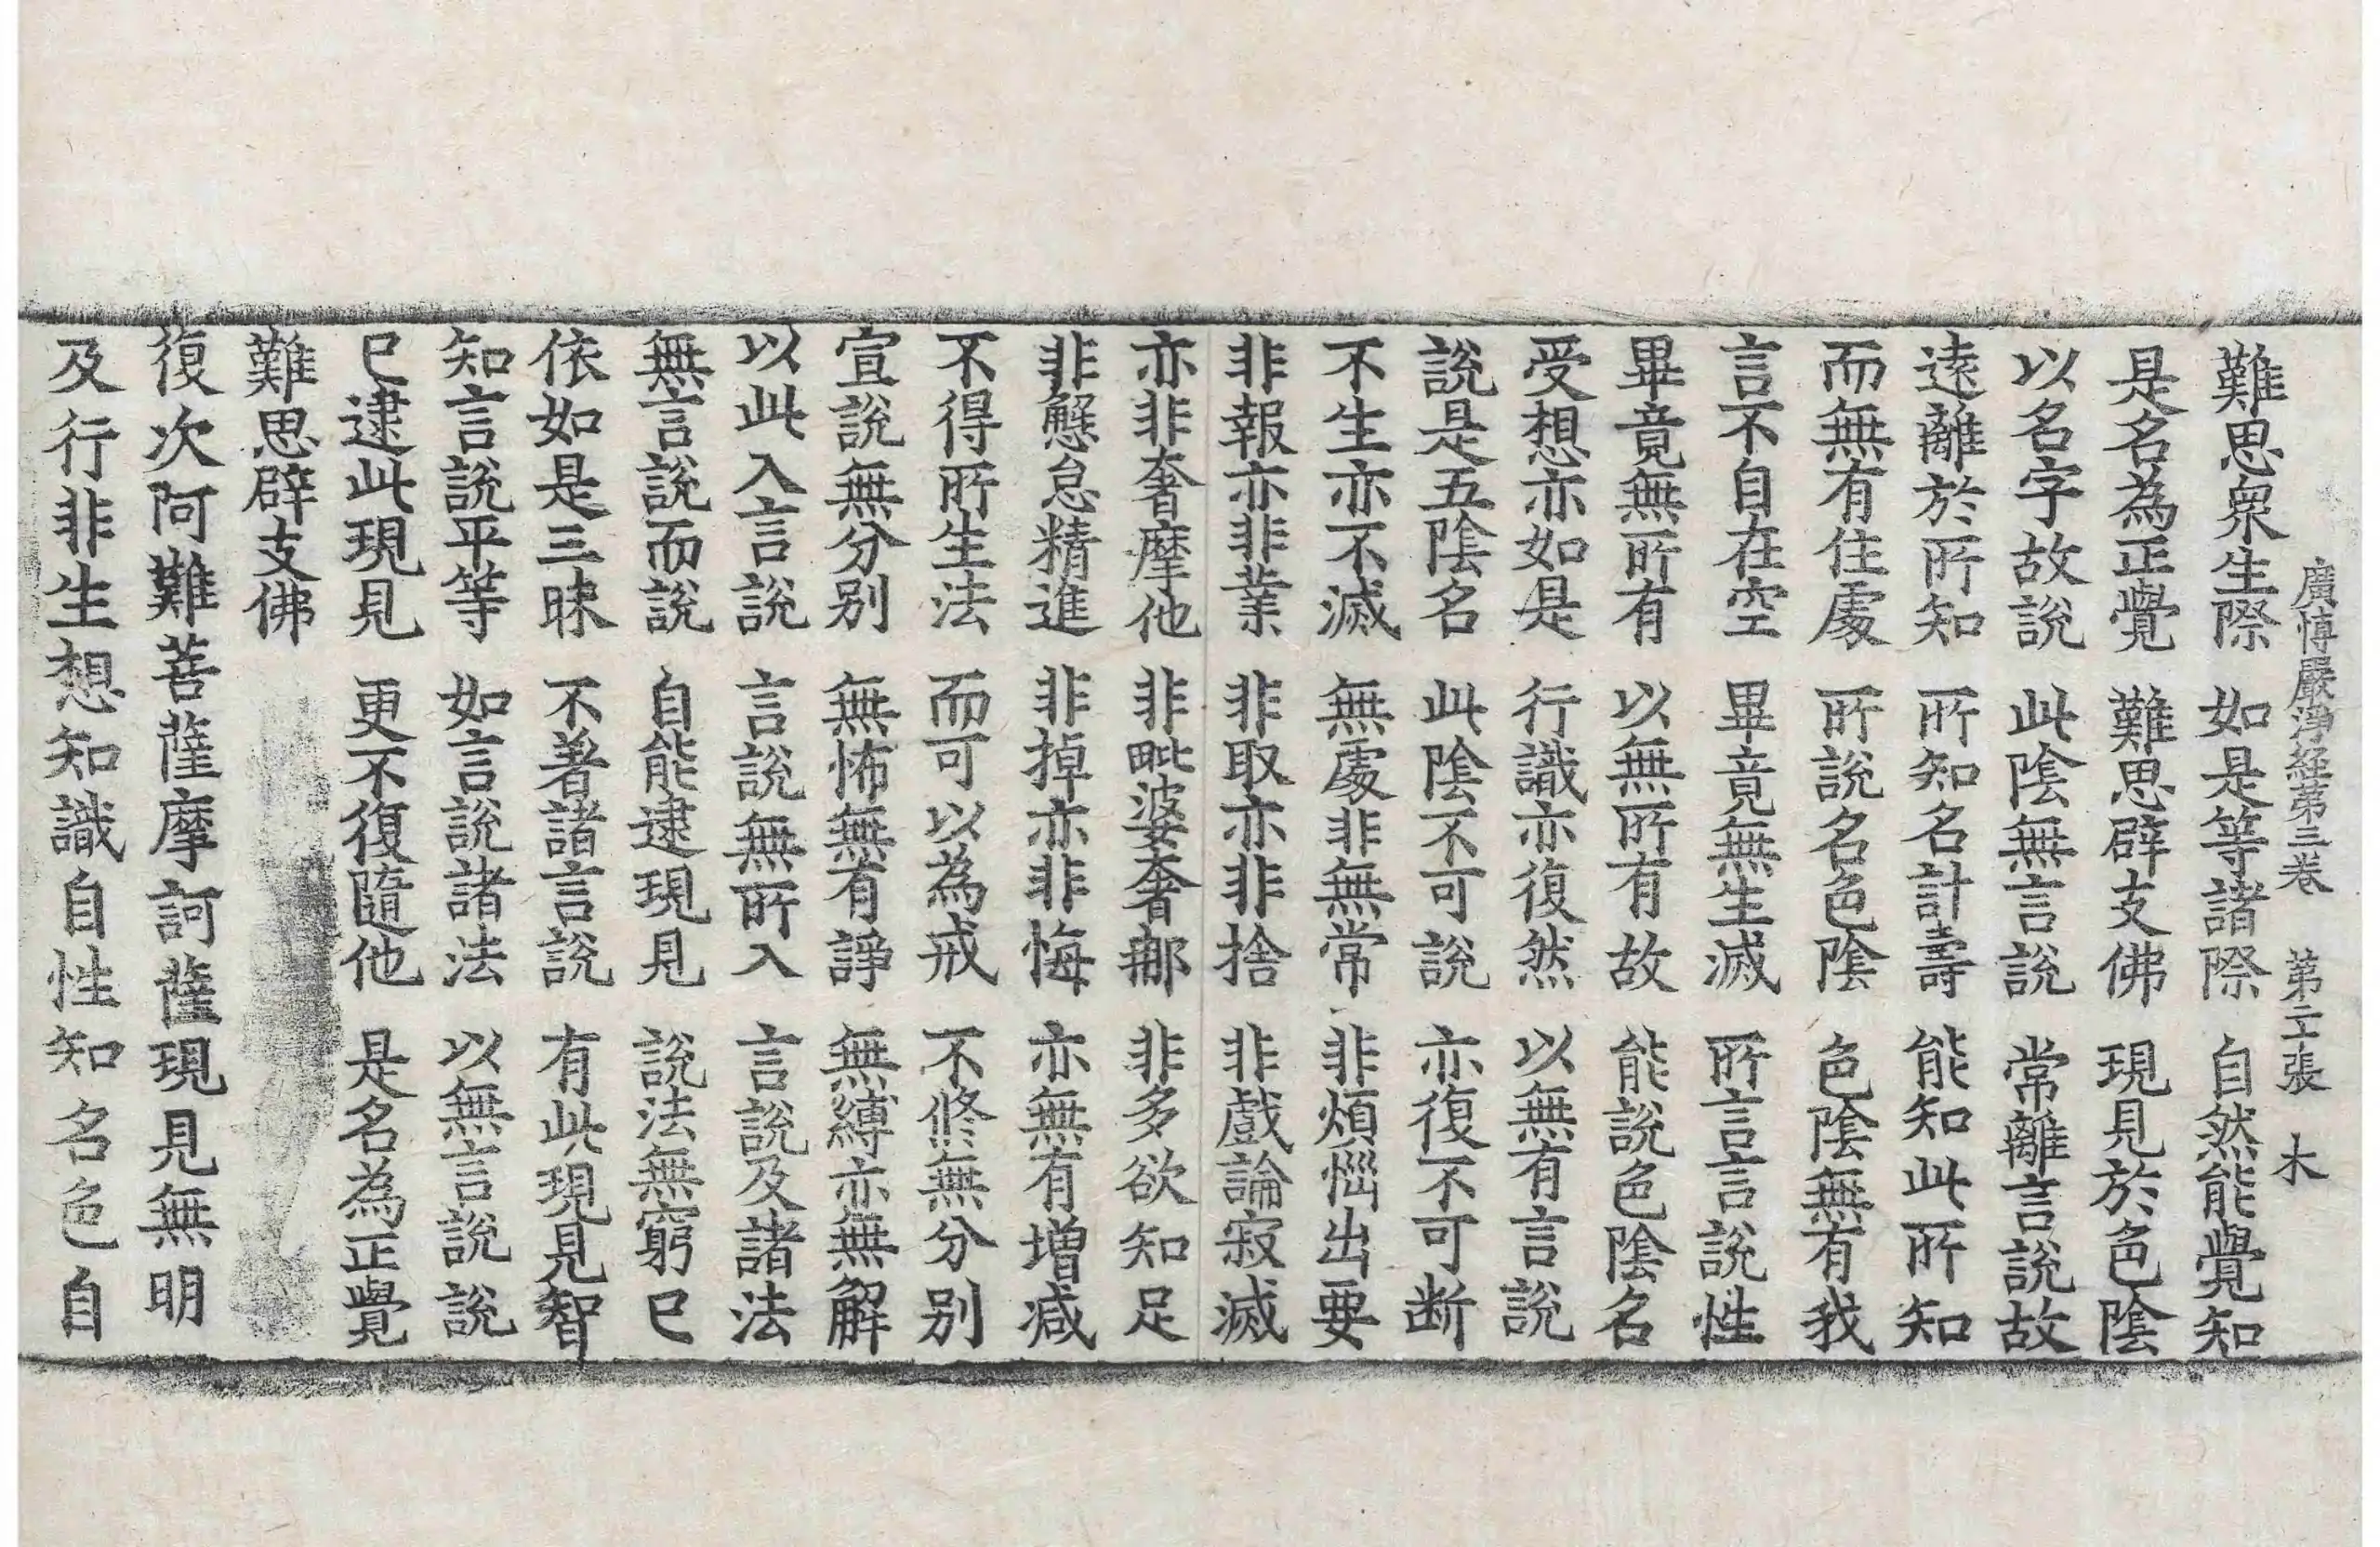 廣博嚴淨經第三卷 第二十張 木
難思衆生際 如是等諸際 自然能覺知
是名為正覺 難思辟支佛 現見於色陰
以名字故說 此陰無言說 常離言說故
遠離於所知 所知名計壽 能知此所知
而無有住處 所說名色陰 色陰無有我
言不自在空 畢竟無生滅 所言言說性
畢竟無所有 以無所有故 能說色陰名
受想亦如是 行識亦復然 以無有言說
說是五陰名 此陰不可說 亦復不可断
不生亦不滅 無處非無常 非煩惱出要
非報亦非業 非取亦非捨 非戲論寂滅
亦非奢摩他 非毗婆奢那 非多欲知足
非懈怠精進 非掉亦非悔 亦無有增減
不得所生法 而可以為戒 不修無分別
宣說無分別 無怖無有諍 無縛亦無解
以此入言說 言說無所入 言說及諸法
無言說而說 自能逮現見 說法無窮已
依如是三昧 不著諸言說 有此現見智
知言說平等 如言說諸法 以無言說說
已逮此現見 更不復隨他 是名為正覺
難思辟支佛
復次阿難菩薩摩訶薩現見無明
及行非生想知識自性知名色自